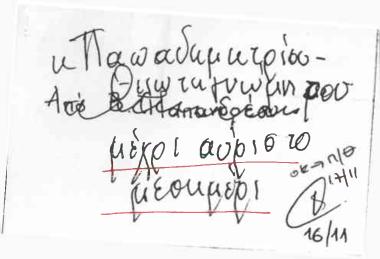 κ Παπαδημητρίου -
Θέλω τη γνώμη σου
Από Β. Παπανδρέου
μέχρι αύριο το
μεσημέρι
οκ → π/θ
17/11
16/11